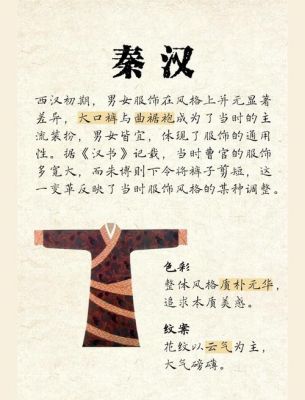 秦汉
西汉初期，男女服饰在风格上并无显著
差异，大口裤与曲裾袍成为了当时的主
流装扮，男女皆宜，体现了服饰的通用
性。据《汉书》记载，当时曹官的服饰
多宽大，而朱博则下令将裤子剪短，这
一变革反映了当时服饰风格的某种调整。
色彩
整体风格质朴无华，
追求本质美感。
纹案
花纹以云气为主，
大气磅礴。